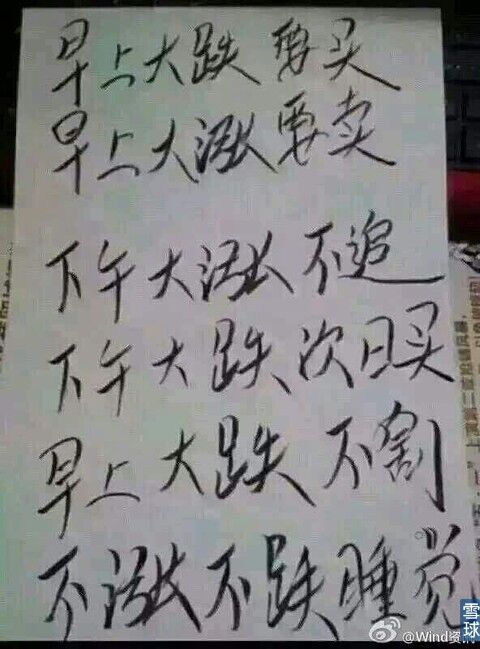 早上大跌要买
早上大涨要卖
下午大涨不追
下午大跌次日买
早上大跌不割
不涨不跌睡觉
雪球
@Wind资讯